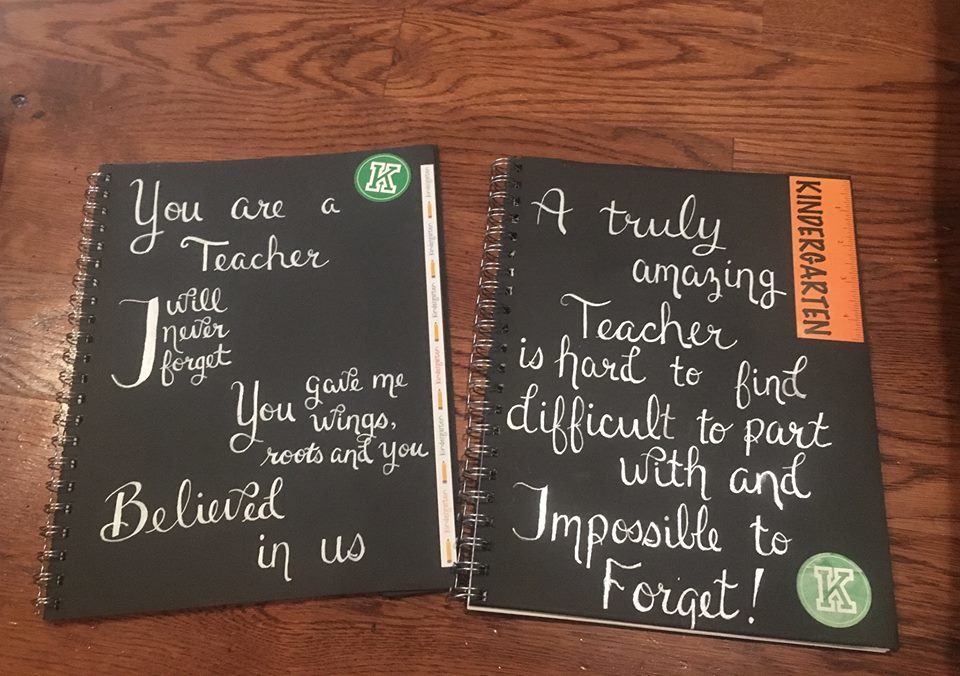 You are a
Teacher
I will
never
forget
You gave me
wings,
roots and you
Believed
in us
K
kindergarten kindergarten kindergarten kindergarten kindergarten kindergarten kindergarten
A truly
amazing
Teacher
is hard to find
difficult to part
with and
Impossible to
Forget!
KINDERGARTEN
K